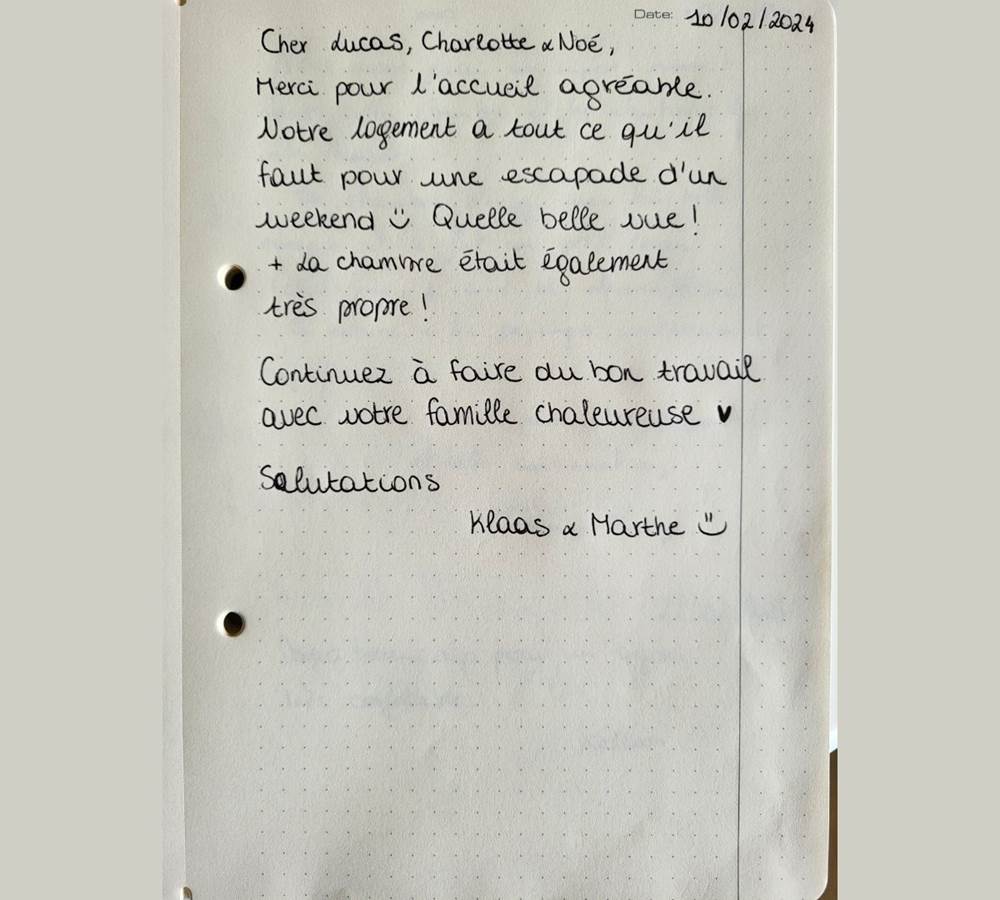 Date: 10/02/2024
Cher Lucas, Charlotte & Noé,
Merci pour l'accueil agréable.
Votre logement a tout ce qu'il
faut pour une escapade d'un
weekend :) Quelle belle vue!
+ La chambre était également
très propre!
Continuez à faire du bon travail
avec votre famille chaleureuse ♥
Salutations
Klaas & Marthe :)